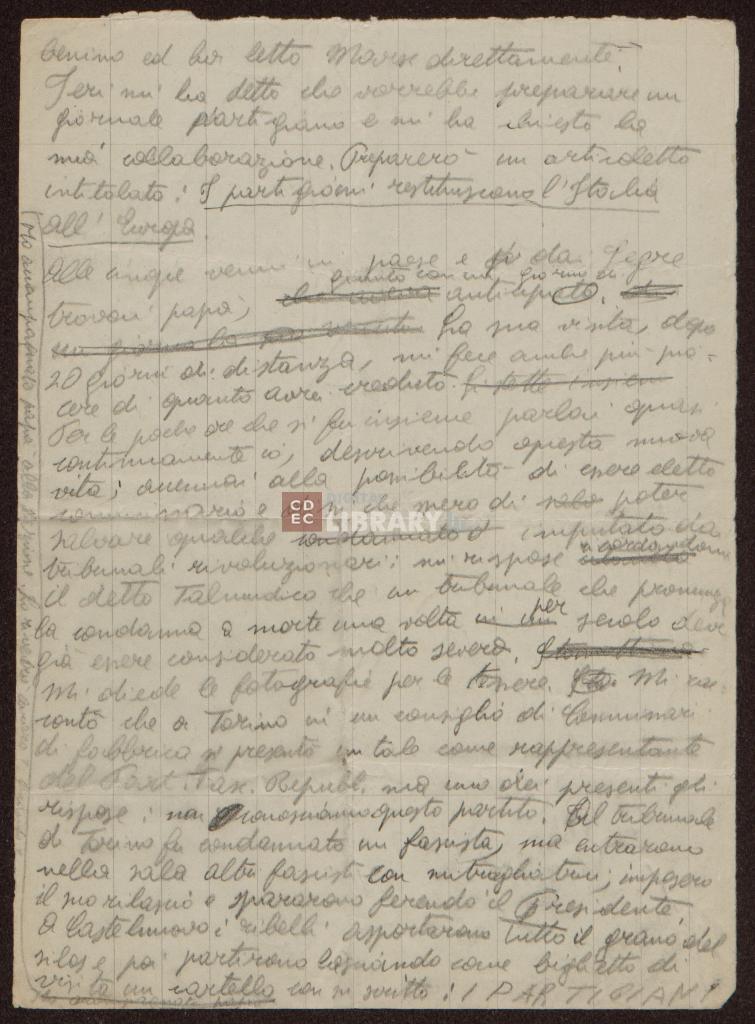 benino ed ha letto Marx direttamente.
Ieri mi ha detto che vorrebbe preparare un
giornale partigiano e mi ha chiesto la
mia collaborazione. Preparerò un articoletto
intitolato: I partigiani restituiscono l'Italia
all'Europa.
Alle cinque venni in paese e da Segre
giunto con un giorno di
trovai papà, anticipato.
La sua visita, dopo
20 giorni di distanza, mi fece anche più pia-
cere di quanto avrei creduto.
Per le poche ore che si fu insieme parlai quasi
continuamente io, descrivendo questa nuova
vita; accennai alla possibilità di essere eletto
commissario e che spero di poter
salvare qualche imputato da
tribunali rivoluzionari; mi rispose ricordandomi
il detto Talmudico che un tribunale che pronunzia
la condanna a morte una volta per secolo deve
già essere considerato molto severo.
Mi diede le fotografie per le tessere. Mi rac-
contò che a Torino in un consiglio di Commissari
di fabbrica si presentò un tale come rappresentante
del Part. Fas. Repubbl. ma uno dei presenti gli
rispose: non conosciamo questo partito. Al tribunale
di Torino fu condannato un fascista, ma entrarono
nella sala altri fascisti con mitragliatrici, imposero
il suo rilascio e spararono ferendo il Presidente.
A Castelnuovo i ribelli asportarono tutto il grano del
silos e poi partirono lasciando come biglietto di
visita un cartello con su scritto: I PARTIGIANI
Ho accompagnato papà alla
CDEC
DIGITAL
LIBRARY